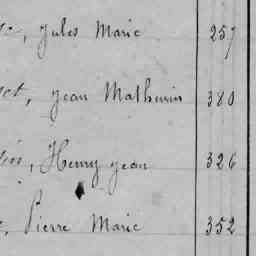 , Jules Marie 257
, Jean Mathurin 380
, Henry Jean 326
, Pierre Marie 352